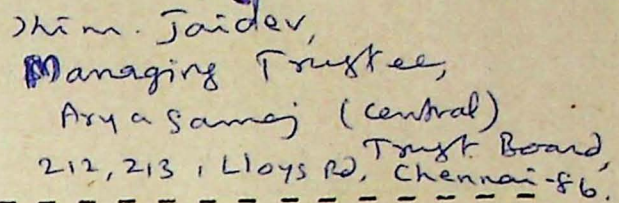 Shim. Jaidev,
Managing Trustee,
Arya Samaj (Central)
Trust Board,
212, 213, Lloys Rd, Chennai-86.